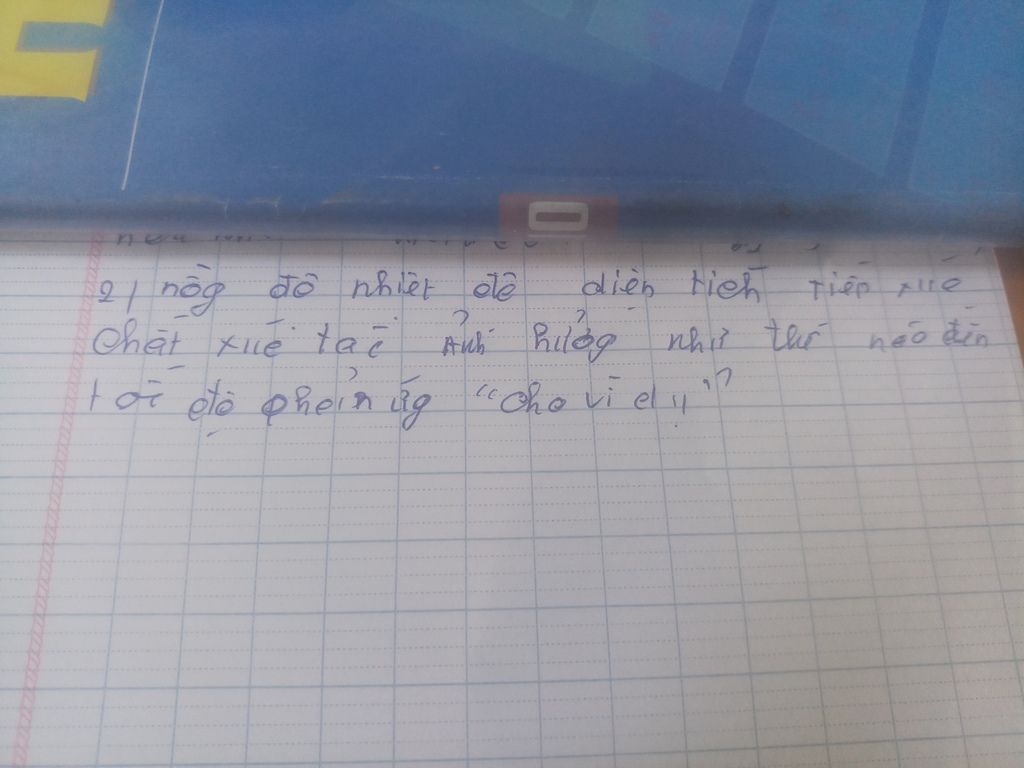 2) nồg độ nhiệt độ diện tích tiếp xúc
Chất xúc tác Ảnh hưởg như thế nào đến
tốc độ phản ứg "cho ví dụ"?